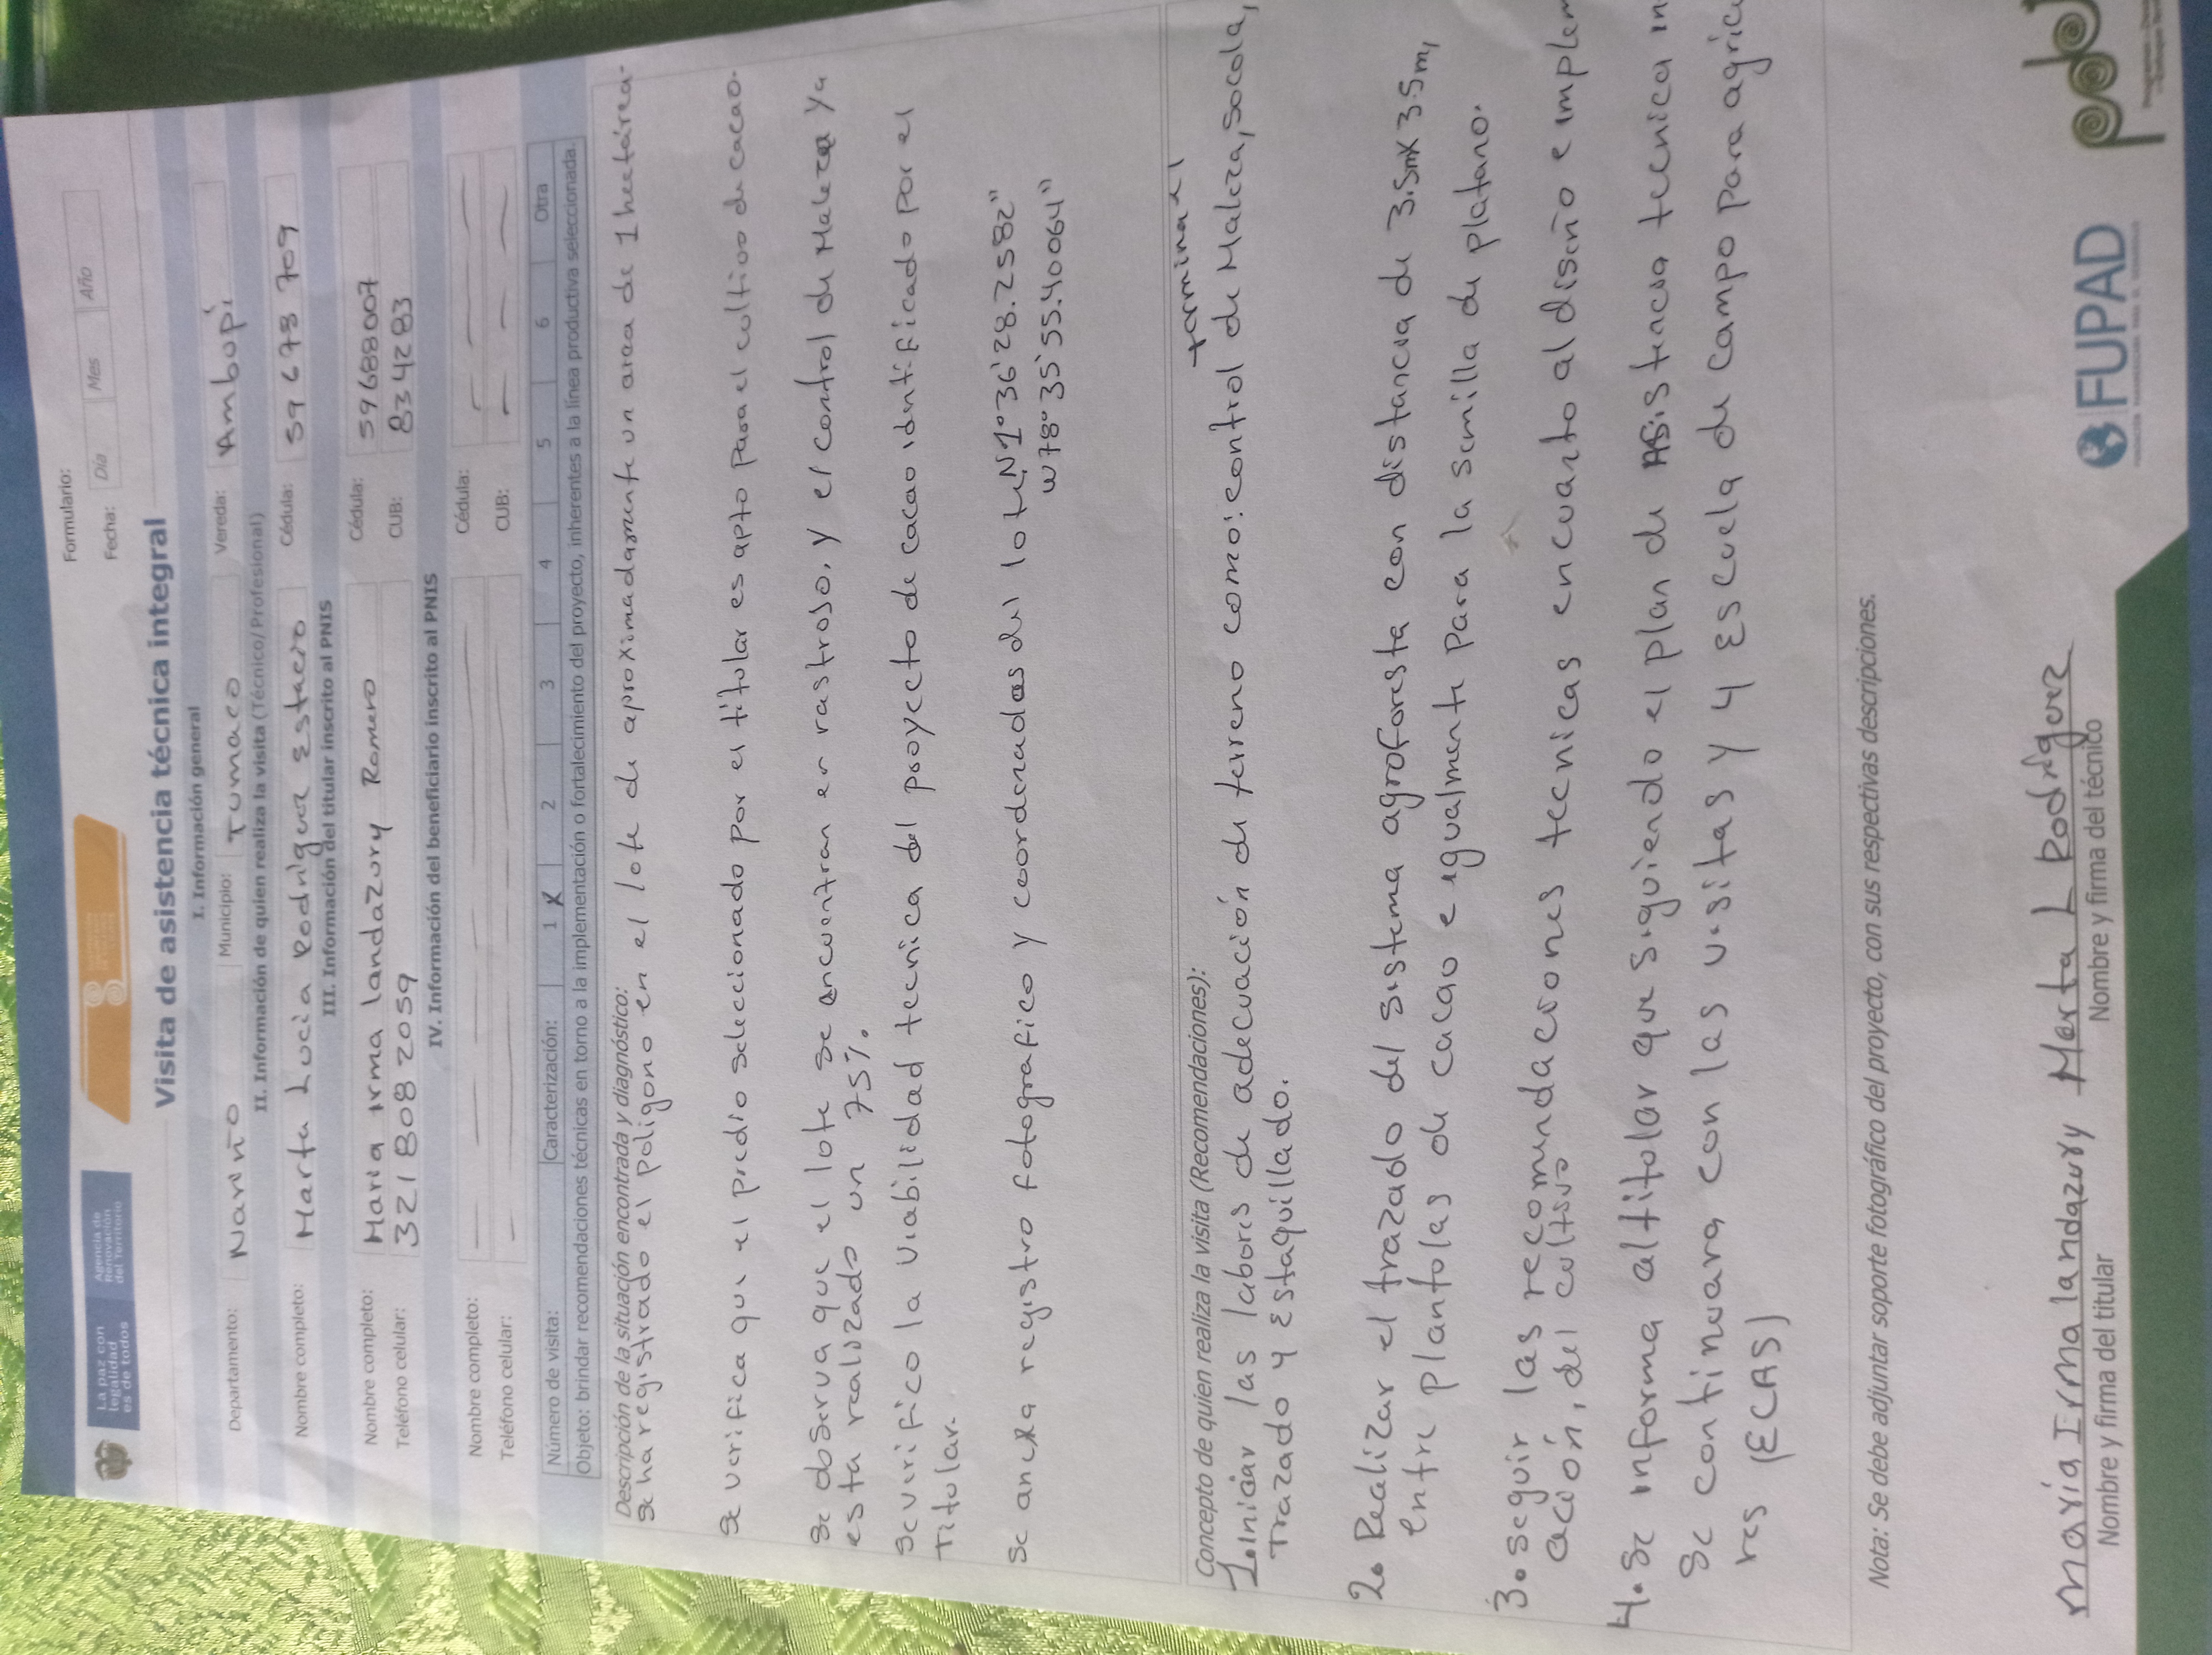 La paz con
legalidad
es de todos
Agencia de
Renovación
del Territorio
Formulario:
Fecha: Día Mes Año
Visita de asistencia técnica integral
I. Información general
Departamento: Nariño Municipio: Tumaco Vereda: Ambupí
II. Información de quien realiza la visita (Técnico/Profesional)
Nombre completo: Marta Lucia Rodríguez Estacro Cédula: 59 678 709
III. Información del titular inscrito al PNIS
Nombre completo: Maria irma landazury Romero Cédula: 59688007
Teléfono celular: 321 808 2059 CUB: 8342 83
IV. Información del beneficiario inscrito al PNIS
Nombre completo: Cédula:
Teléfono celular: CUB:
Número de visita: Caracterización: 1 X 2 3 4 5 6 Otra
Objeto: brindar recomendaciones técnicas en torno a la implementación o fortalecimiento del proyecto, inherentes a la línea productiva seleccionada.
Descripción de la situación encontrada y diagnóstico:
Se ha registrado el poligono en el lote de aproximadamente un area de 1 hectárea-
Se verifica que el predio seleccionado por el titular es apto para el cultivo de cacao.
Se observa que el lote se encuentran en rastrojo, y el control de Maleza ya
esta realizado un 75%.
Se verifico la viabilidad tecnica del proyecto de cacao identificado por el
titular.
Se anexa registro fotografico y coordenadas del lote N1°36'28.2582"
W78°35'55.40064"
Concepto de quien realiza la visita (Recomendaciones):
terminar el
1. Iniciar las labores de adecuación de terreno como: control de Maleza, Socola,
Trazado y Estaquillado.
2. Realizar el trazado del sistema agroforesta con distancia de 3.5mX3.5m,
entre plantolas de cacao e igualmente para la semilla de platano.
3. seguir las recomendaciones tecnicas encuanto al diseño e implem
ación, del cultivo
4. Se informa altitolar que siguiendo el plan de Asistencia tecnica in
Se continuara con las visitas y 4 Escuela de Campo para agric
res (ECAS)
Nota: Se debe adjuntar soporte fotográfico del proyecto, con sus respectivas descripciones.
maría Irma landazury Marta L Rodríguez
Nombre y firma del titular Nombre y firma del técnico
FUPAD